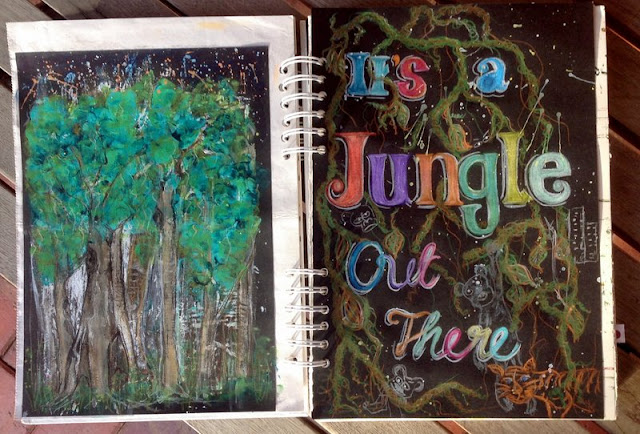 It's a
Jungle
Out
There